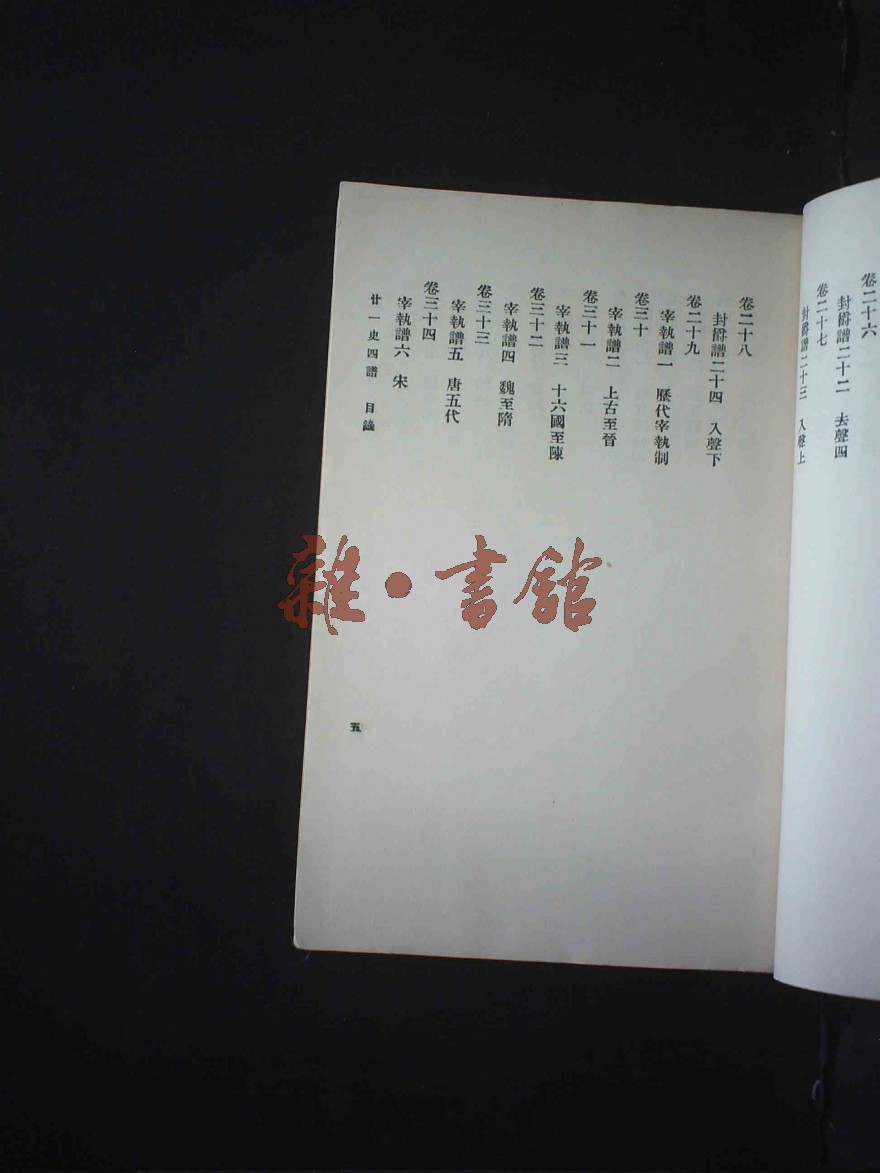 卷二十六
封爵譜二十二　去聲四
卷二十七
封爵譜二十三　入聲上
卷二十八
封爵譜二十四　入聲下
卷二十九
宰執譜一　歷代宰執制
卷三十
宰執譜二　上古至晉
卷三十一
宰執譜三　十六國至陳
卷三十二
宰執譜四　魏至隋
卷三十三
宰執譜五　唐五代
卷三十四
宰執譜六　宋
廿一史四譜　目錄
五
雜·書館